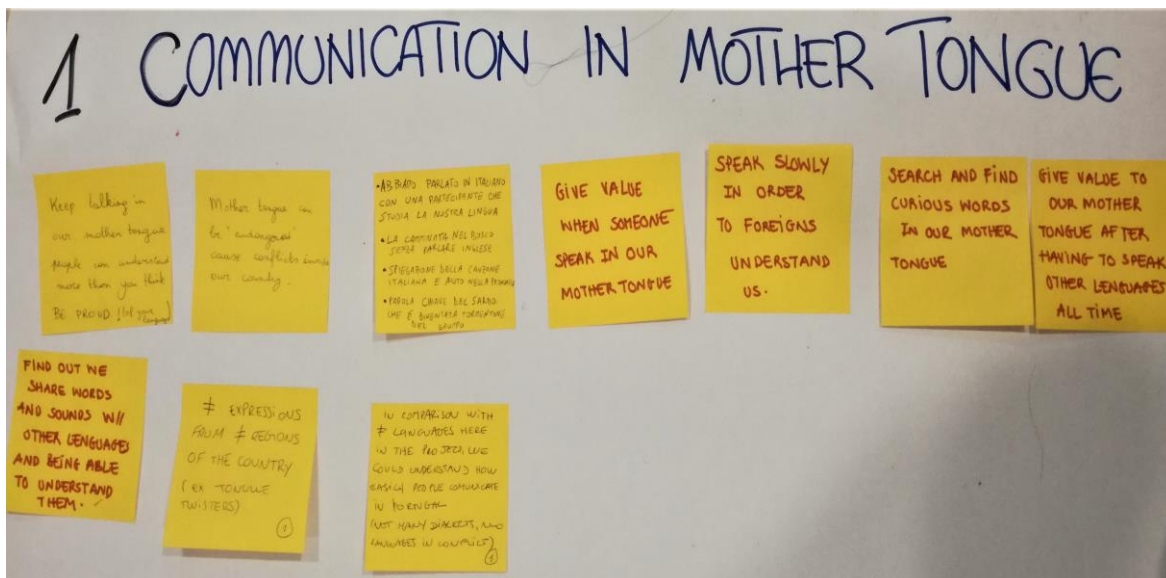 1 COMMUNICATION IN MOTHER TONGUE
Keep talking in
our mother tongue
people can understand
more than you think
BE PROUD! (of your
language)
Mother tongue can
be "endangered"
cause conflicts inside
our country.
• ABBIAMO PARLATO IN ITALIANO
CON UNA PARTECIPANTE CHE
STUDIA LA NOSTRA LINGUA
• LA CAMMINATA NEL BOSCO
SENZA PARLARE INGLESE
• SPIEGAZIONE DELLA CANZONE
ITALIANA E AIUTO NELLA
• PAROLA CHIAVE DEL SARDO
CHE È DIVENTATA TORMENTONE
DEL GRUPPO
GIVE VALUE
WHEN SOMEONE
SPEAK IN OUR
MOTHER TONGUE
SPEAK SLOWLY
IN ORDER
TO FOREIGNS
UNDERSTAND
US.
SEARCH AND FIND
CURIOUS WORDS
IN OUR MOTHER
TONGUE
GIVE VALUE TO
OUR MOTHER
TONGUE AFTER
HAVING TO SPEAK
OTHER LENGUAGES
ALL TIME
FIND OUT WE
SHARE WORDS
AND SOUNDS W//
OTHER LENGUAGES
AND BEING ABLE
TO UNDERSTAND
THEM.
≠ EXPRESSIONS
FROM ≠ REGIONS
OF THE COUNTRY
(EX TONGUE
TWISTERS)
1
IN COMPARISON WITH
≠ LANGUAGES HERE
IN THE PROJECT, WE
COULD UNDERSTAND HOW
EASILY PEOPLE COMUNICATE
IN PORTUGAL
(NOT MANY DIALECTS, NO
LANGUAGES IN CONFLICT)
1